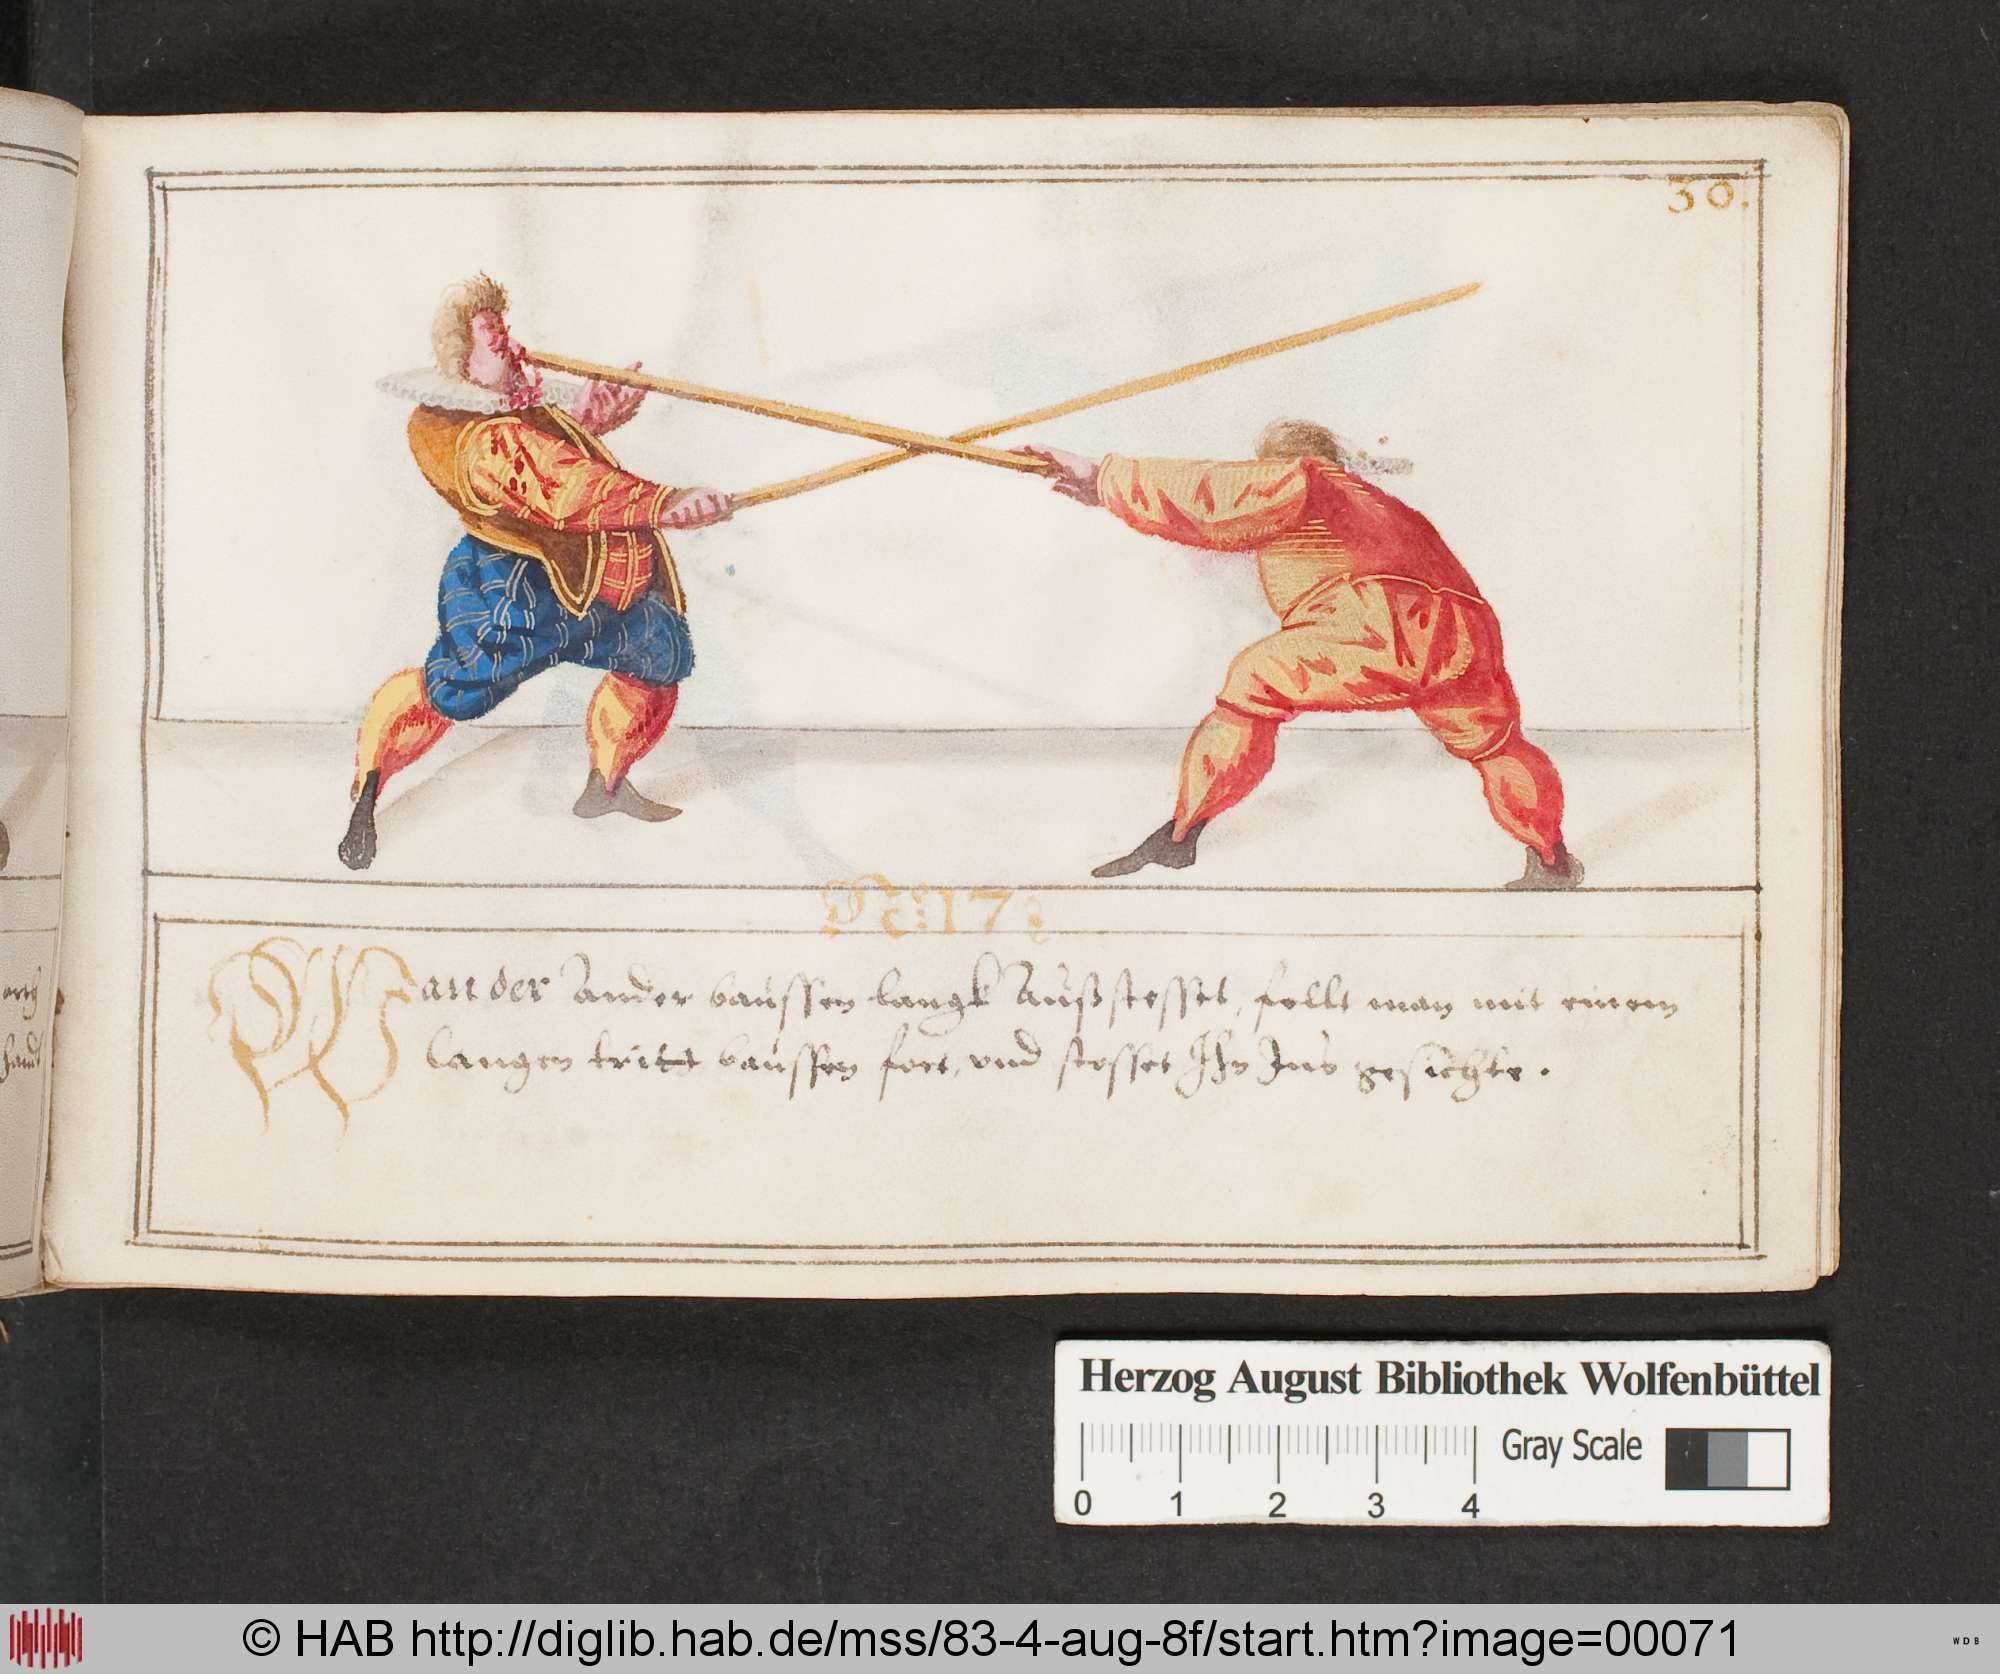 30.
N: 17:
Wan der Ander baussen langk Außstosset, fellt man mit einem
langen tritt baussen fort, vnd stosset Ihn Ins gesichte.
Herzog August Bibliothek Wolfenbüttel
Gray Scale
0 1 2 3 4
© HAB http://diglib.hab.de/mss/83-4-aug-8f/start.htm?image=00071
WDB